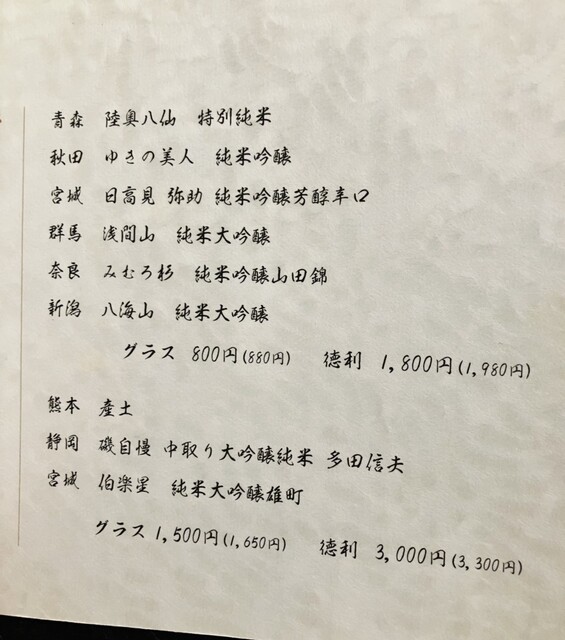 青森 陸奥八仙 特別純米
秋田 ゆきの美人 純米吟醸
宮城 日高見 弥助 純米吟醸芳醇辛口
群馬 浅間山 純米大吟醸
奈良 みむろ杉 純米吟醸山田錦
新潟 八海山 純米大吟醸
グラス 800円(880円) 徳利 1,800円(1,980円)
熊本 産土
静岡 磯自慢 中取り大吟醸純米 多田信夫
宮城 伯楽星 純米大吟醸雄町
グラス 1,500円(1,650円) 徳利 3,000円(3,300円)